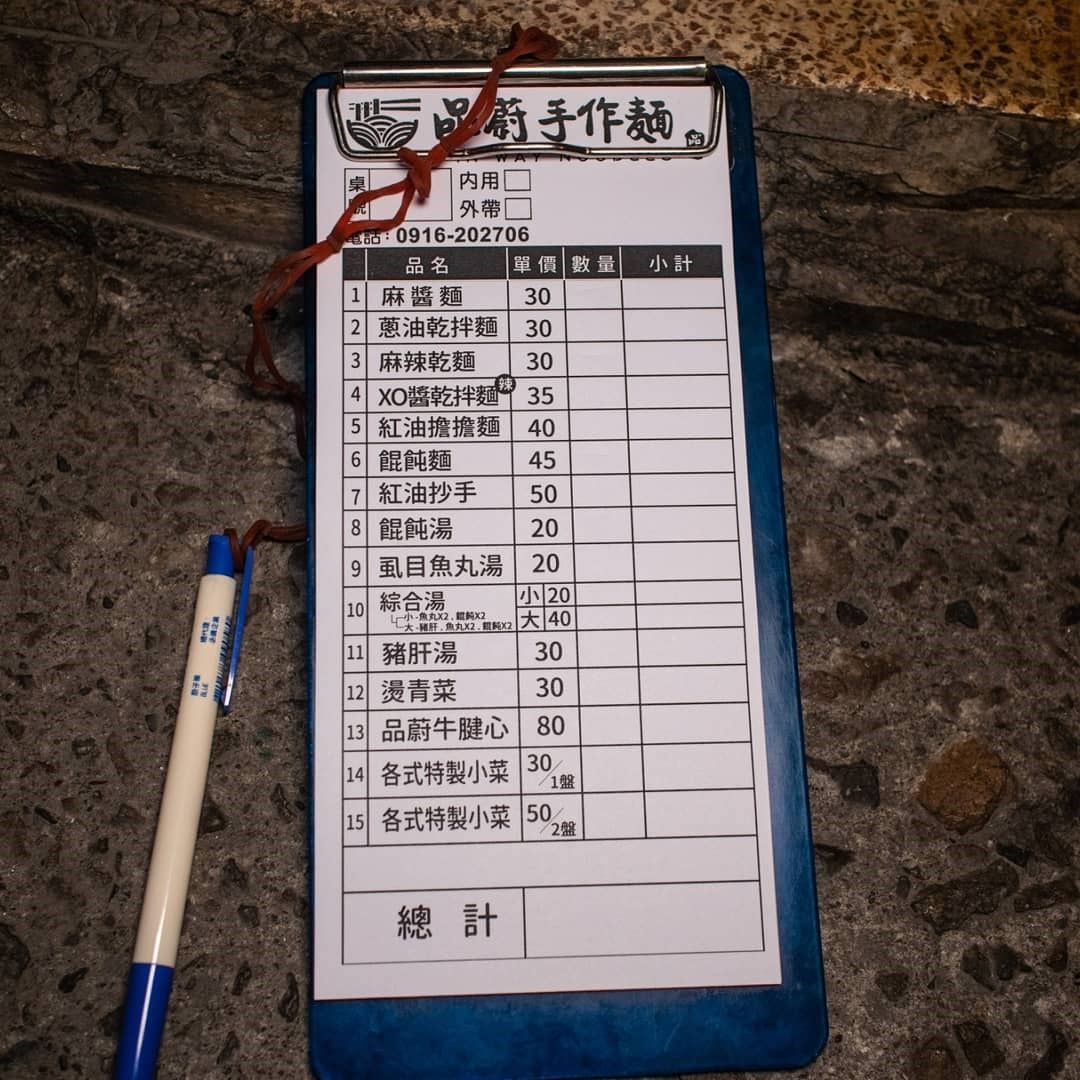 品蔚手作麵
品
WAY NOODLES
桌號 內用
外帶
電話：0916-202706
品名 單價 數量 小計
1 麻醬麵 30
2 蔥油乾拌麵 30
3 麻辣乾麵 30
4 XO醬乾拌麵 辣 35
5 紅油擔擔麵 40
6 餛飩麵 45
7 紅油抄手 50
8 餛飩湯 20
9 虱目魚丸湯 20
10 綜合湯 小 20
小-魚丸X2．餛飩X2
大-豬肝．魚丸X2．餛飩X2 大 40
11 豬肝湯 30
12 燙青菜 30
13 品蔚牛腱心 80
14 各式特製小菜 30/1盤
15 各式特製小菜 50/2盤
總計